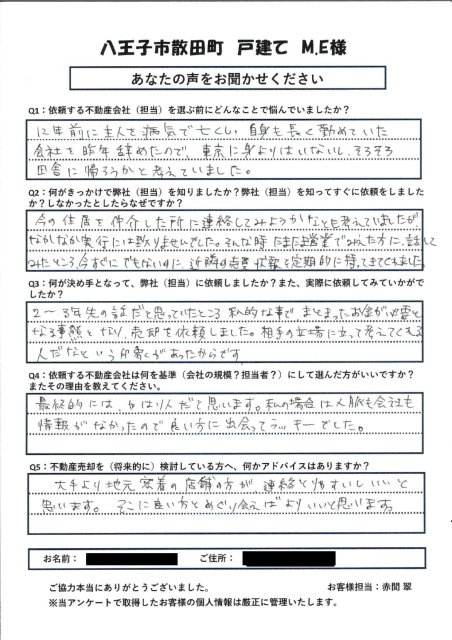 八王子市散田町 戸建て M.E様
あなたの声をお聞かせください
Q1：依頼する不動産会社（担当）を選ぶ前にどんなことで悩んでいましたか？
12年前に主人を病気で亡くし、自身も長く勤めていた
会社を昨年辞めたので、東京に身よりはいないし、そろそろ
田舎に帰ろうかと考えていました。
Q2：何がきっかけで弊社（担当）を知りましたか？弊社（担当）を知ってすぐに依頼をしました
か？しなかったとしたらなぜですか？
今の住居を仲介した所に連絡してみようかなども考えていましたが
なかなか実行には致りませんでした。そんな時たまたま営業でみえた方に、話して
みたところ、今すぐにでもないのに、近隣の売買状報を定期的に持ってきてくれました
Q3：何が決め手となって、弊社（担当）に依頼しましたか？また、実際に依頼してみていかがで
したか？
2〜3年先の話だと思っていたところ 私的な事で まとまったお金が必要と
なる事態となり、売却を依頼しました。相手の立場に立って考えてくれる
人だなという印象があったからです。
Q4：依頼する不動産会社は何を基準（会社の規模？担当者？）にして選んだ方がいいですか？
またその理由を教えてください。
最終的には、やはり人だと思います。私の場合は人脈も会社も
情報がなかったので良い方に出会ってラッキーでした。
Q5：不動産売却を（将来的に）検討している方へ、何かアドバイスはありますか？
大手より地元密着の店舗の方が連絡とりやすいしいいと
思います。そこに良い方とめぐり会えばよりいいと思います。
お名前： ご住所：
ご協力本当にありがとうございました。 お客様担当：赤間 翠
※当アンケートで取得したお客様の個人情報は厳正に管理いたします。